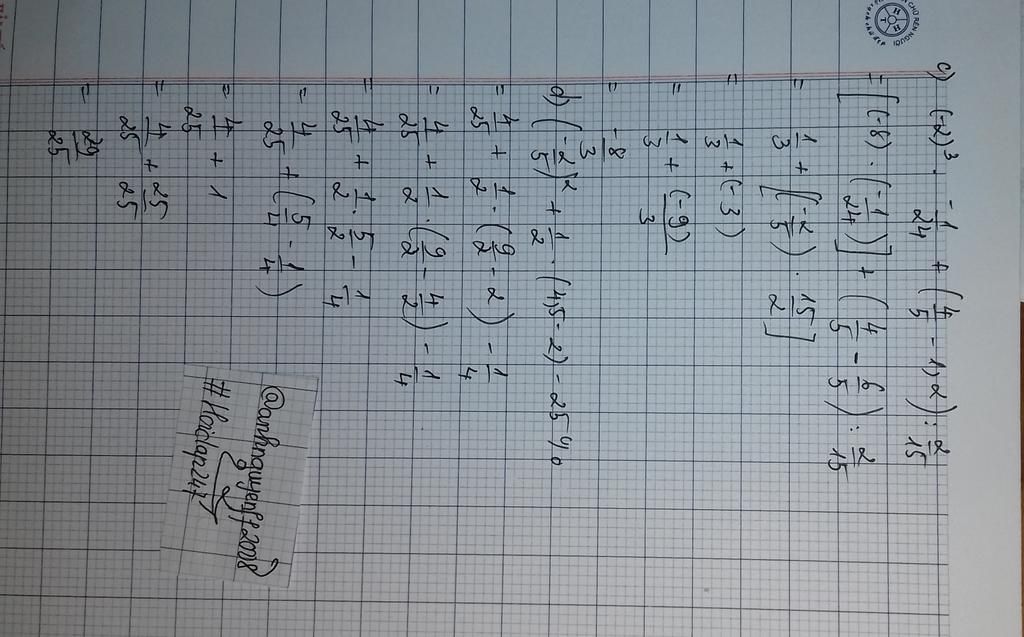 c) (-2)³ . -1/24 + (4/5 - 1,2) : 2/15
= [(-8) . (-1/24)] + (4/5 - 6/5) : 2/15
= 1/3 + [(-2/5) . 15/2]
= 1/3 + (-3)
= 1/3 + (-9)/3
= -8/3
d) (-2/5)² + 1/2 . (4,5 - 2) - 25%
= 4/25 + 1/2 . (9/2 - 2) - 1/4
= 4/25 + 1/2 . (9/2 - 4/2) - 1/4
= 4/25 + 1/2 . 5/2 - 1/4
= 4/25 + (5/4 - 1/4)
= 4/25 + 1
= 4/25 + 25/25
= 29/25
#Hoidap247